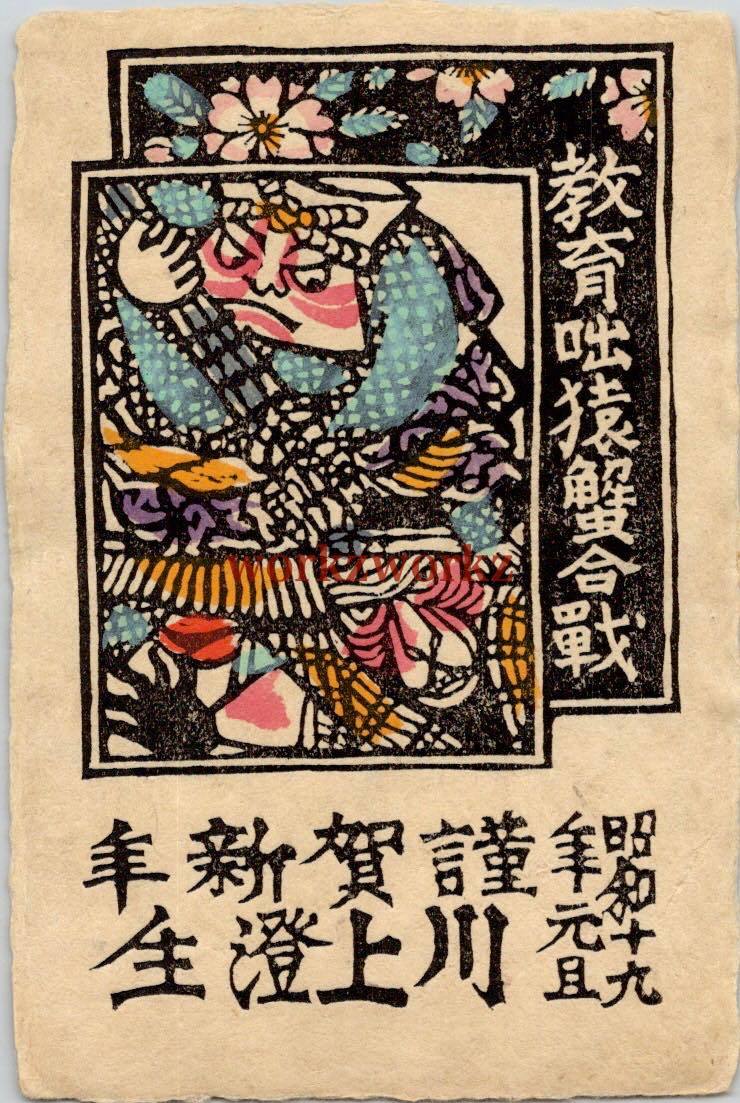 教育咄猿蟹合戰
workzworkz
昭和十九
年元旦
謹賀新年
川上澄生